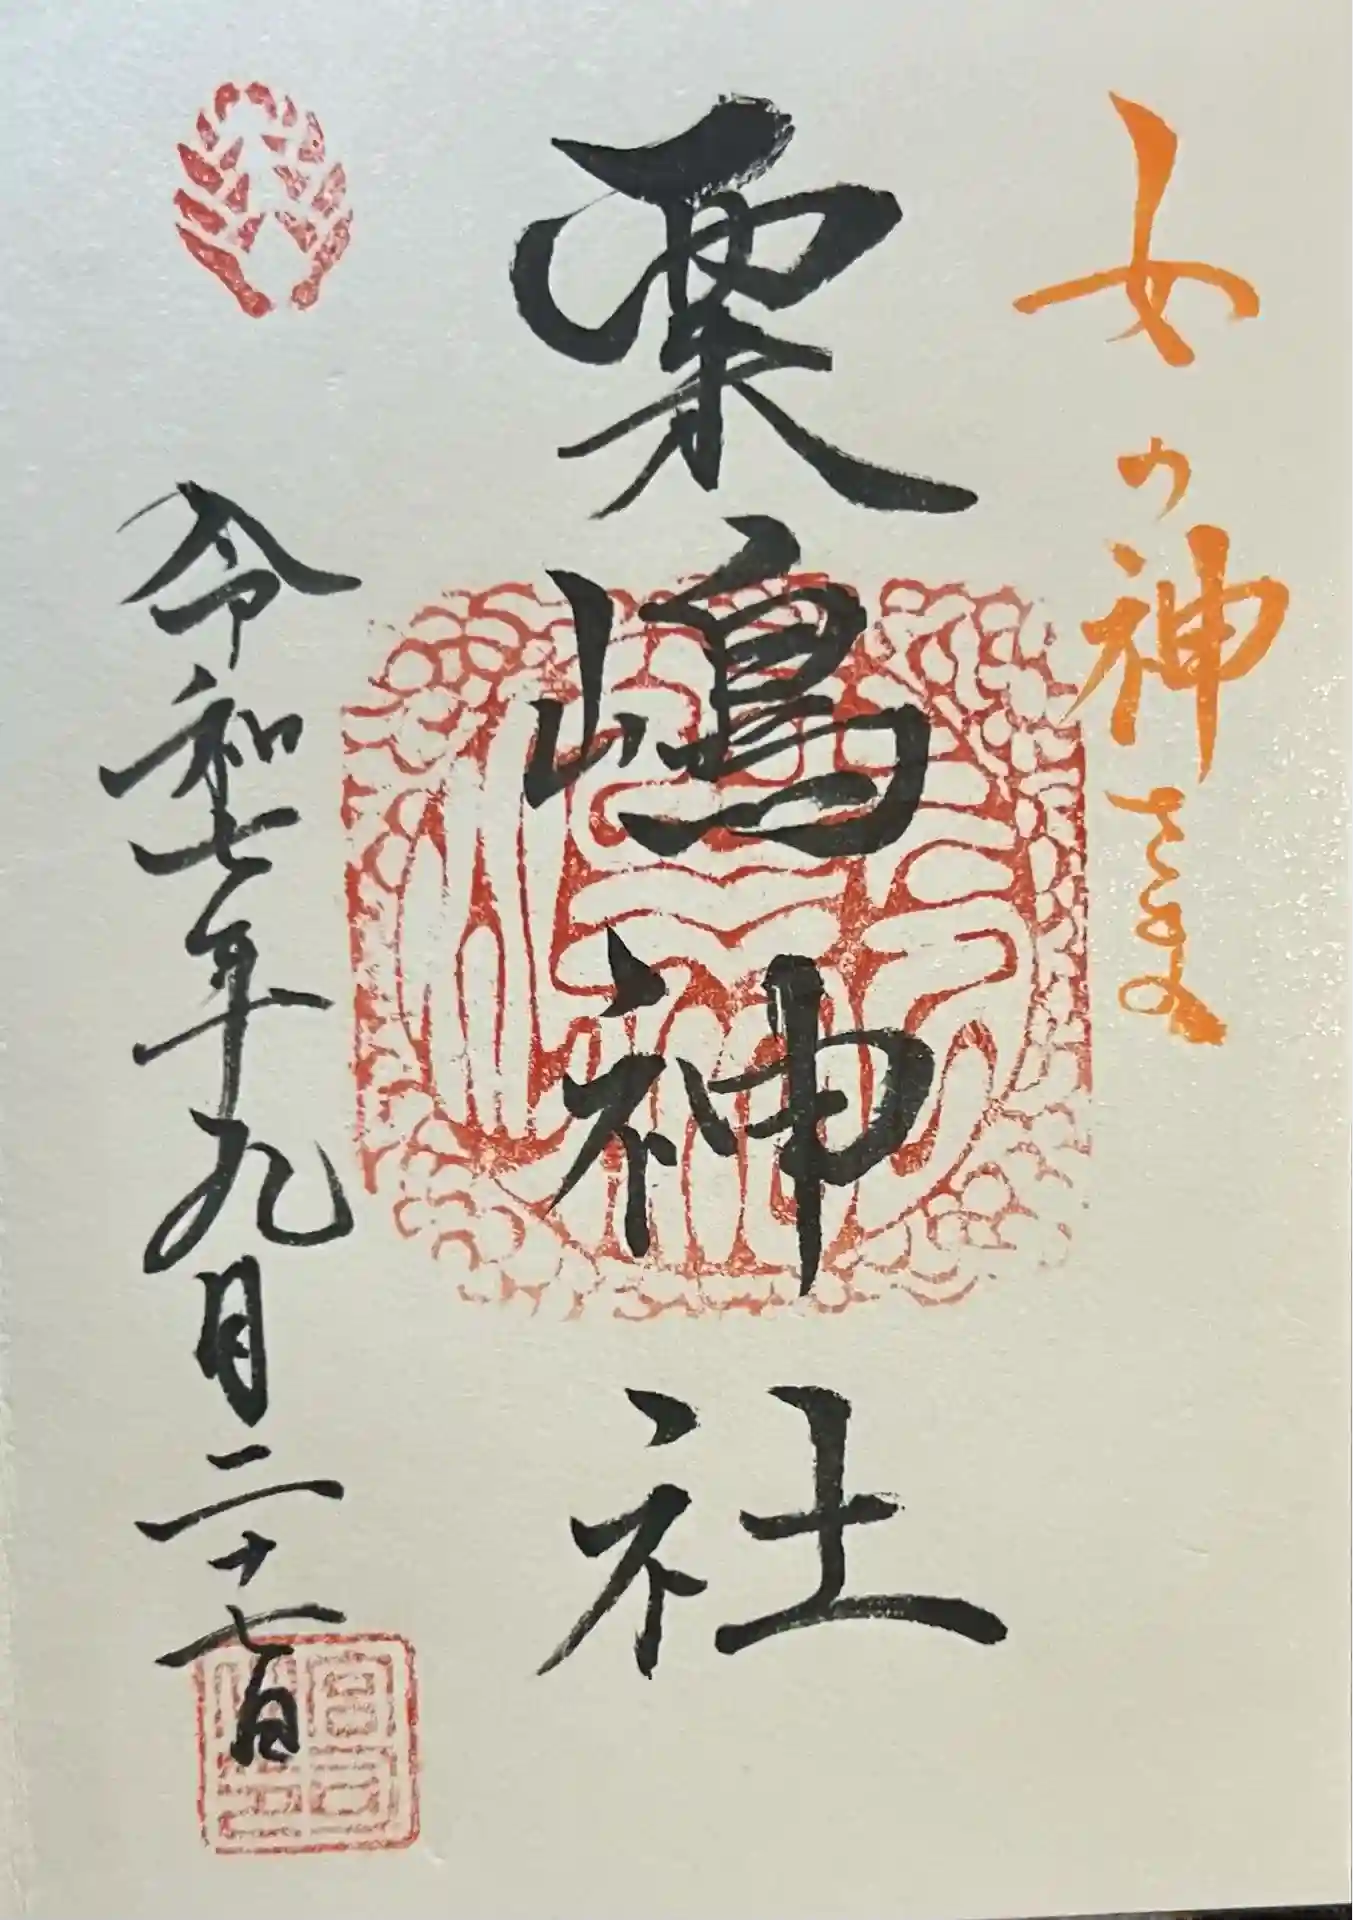 女の神さまの
粟嶋神社
令和七年九月二十七日